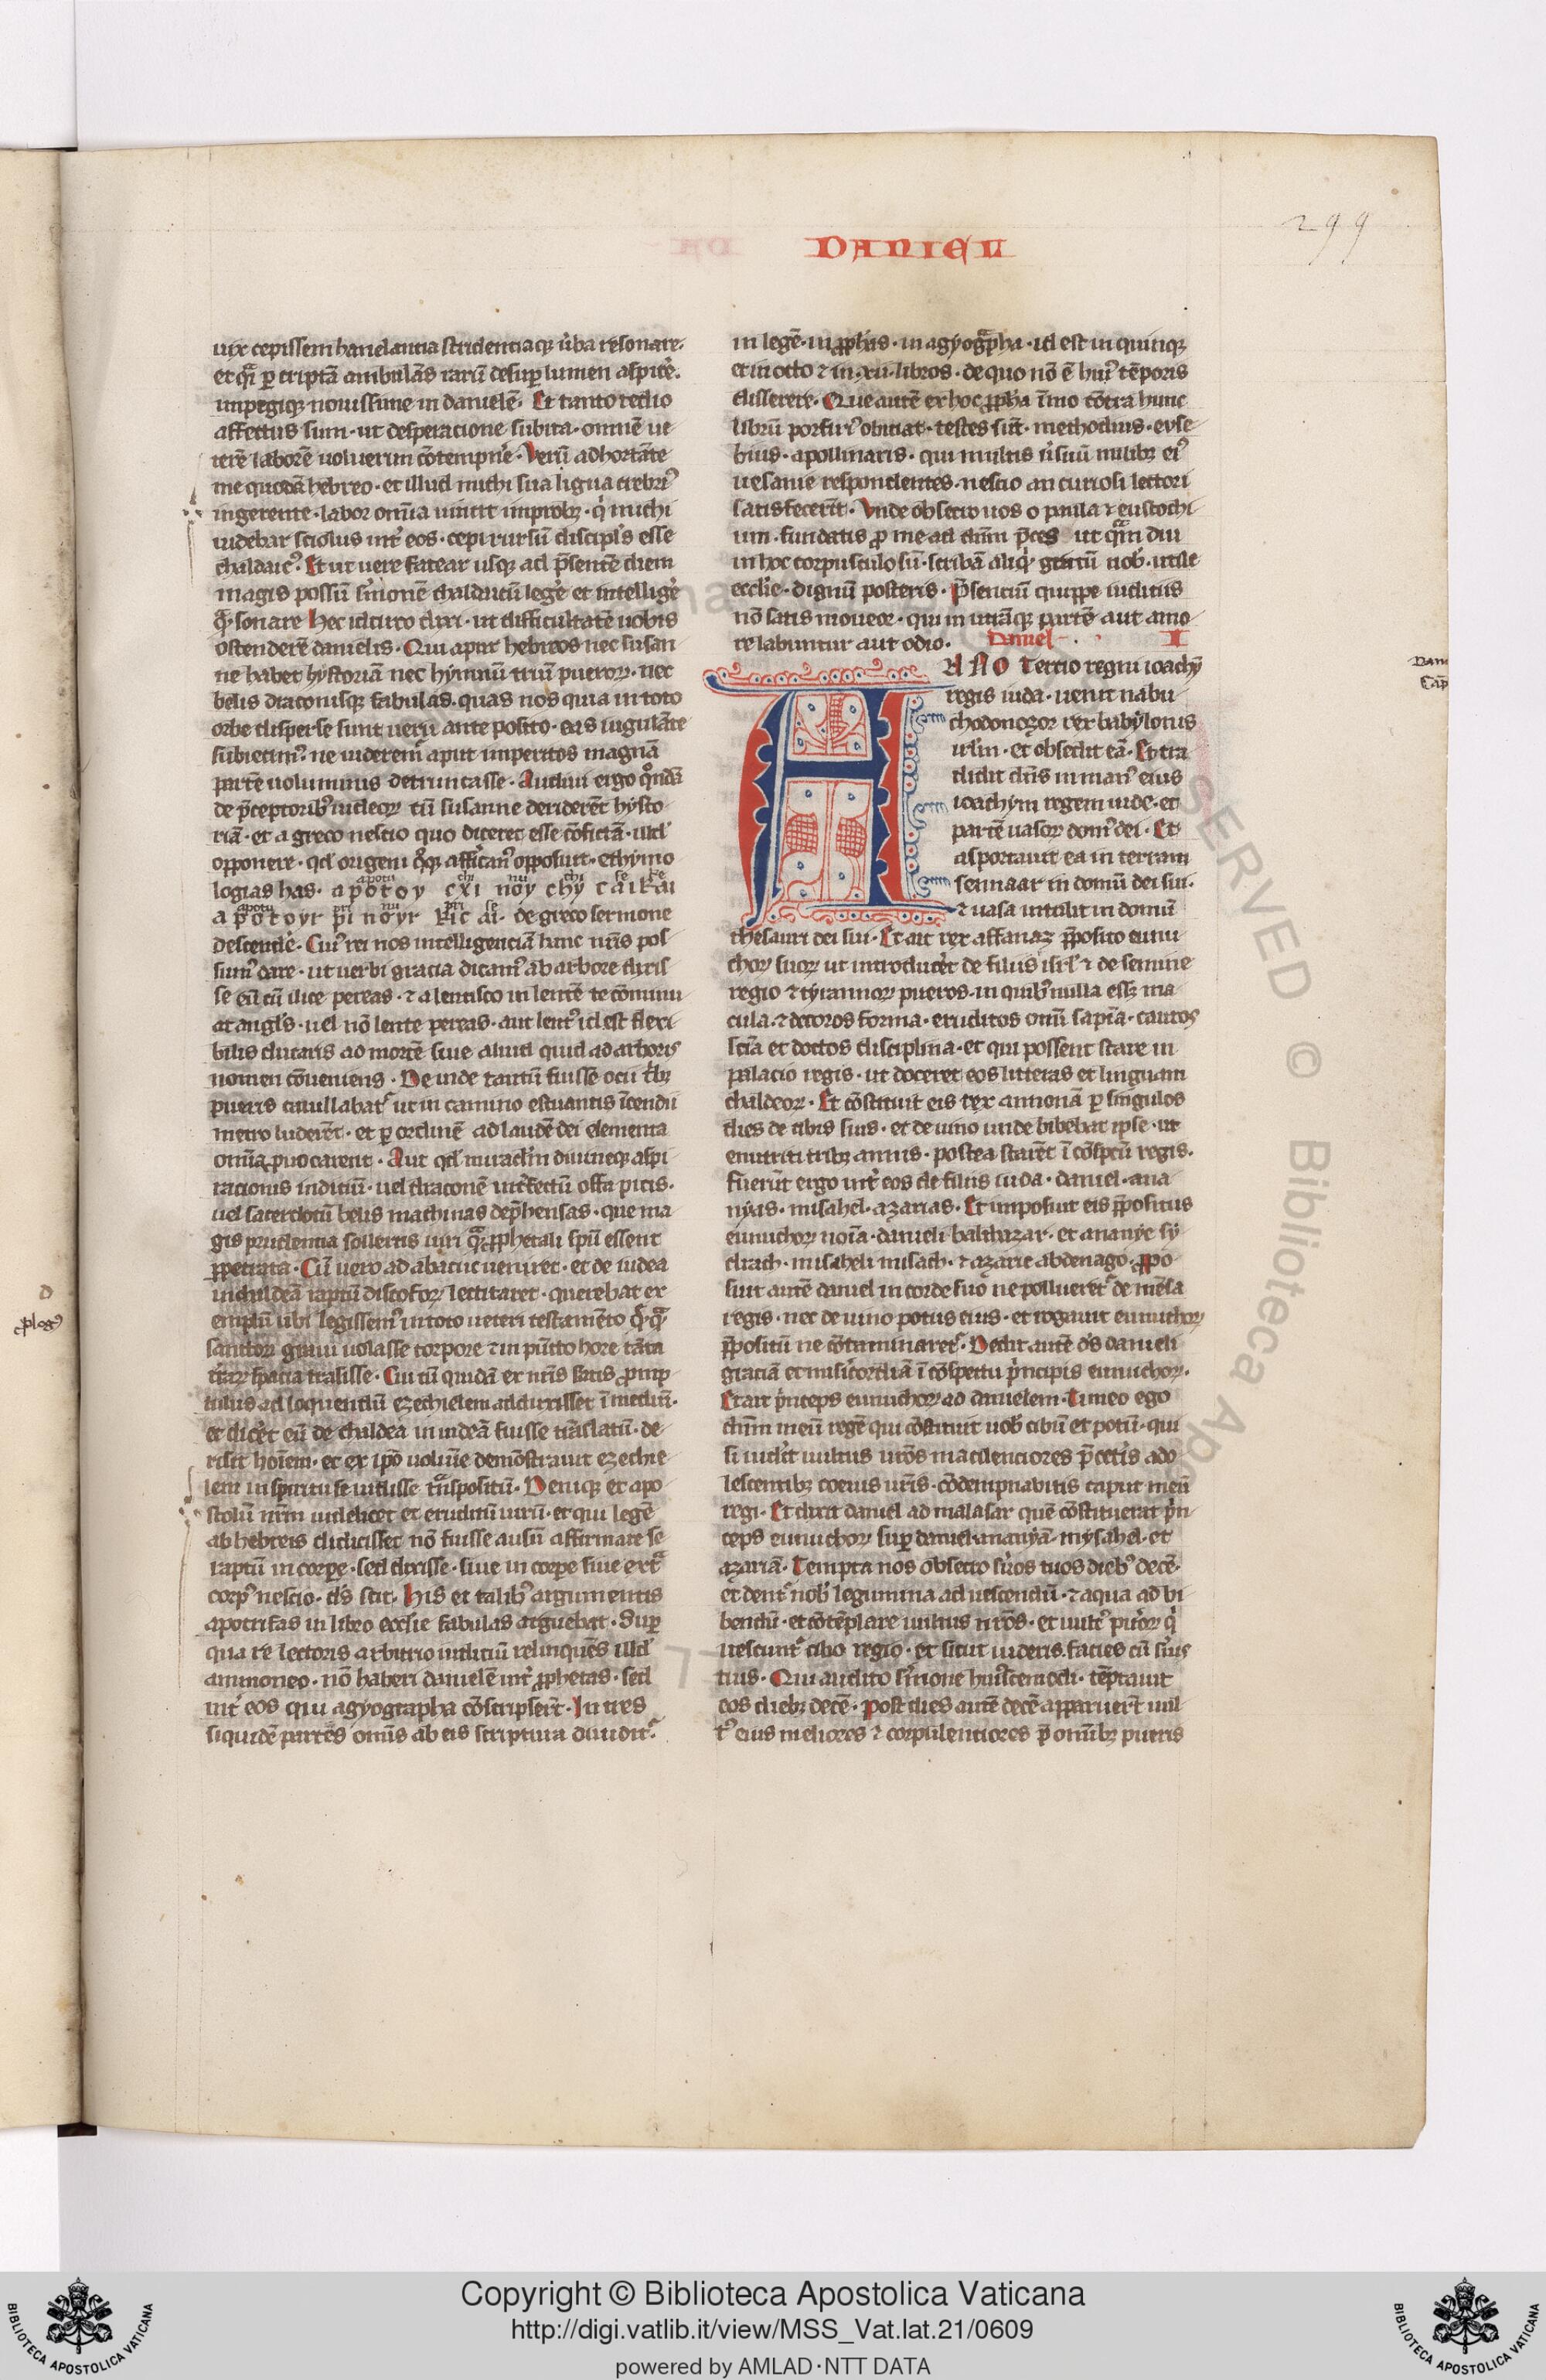 299
DANIEL
uix cepissem hanelantia stridentiaq; ũba resonare.
et q̃i p criptã ambulãs rarũ desup lumen aspicẽ.
impegiq; nouissime in danielẽ. Et tanto tedio
affectus sum. ut desperacione subita. omnẽ ue-
terẽ laborẽ uoluerim cõtempnẽ. Verũ adhortãte
me quodã hebreo. et illud michi sua ligua crebri᾽
ingerente. labor omĩa uincit improbꝫ. q̇ michi
uidebar sciolus int̃ eos. cepi rursũ discipl᾽s esse
chaldaic᾽. Et ut uere fatear usq; ad p̃sentẽ diem
magis possũ s̃monẽ chaldaicũ legẽ et intelligẽ
q̃. sonare Hec idcirco dixi. ut difficultatẽ uobis
ostenderẽ danielis. Qui aput hebreos nec susan-
ne habet hystoriã nec hymnũ triũ pueroꝝ. nec
belis draconisq; fabulas. quas nos quia in toto
orbe disperse sunt ueru ante posito. eas iugulãte
subiecim᾽. ne uiderem᾽ aput imperitos magnã
partẽ uoluminis detruncasse. Audiui ergo q̃ndã
de p̃ceptorib᾽ iudeoꝝ cũ susanne deriderẽt hysto-
riã. et a greco nescio quo diceret esse cõfictã. illd᾽
opponere. qd᾽ origeni q̃q; affrican᾽ opposuit. ethymo
logias has. apotoy cxi noy chy cai kai
apotoyr pi noyr kic ai. de greco sermone
descendẽ. Cui᾽ rei nos intelligenciã hanc nr̃is pos-
sum᾽ dare. ut uerbi gracia dicam᾽ ab arbore dixis-
se eũ cũ ilice pereas. ⁊ a lentisco in lentẽ te cõminu-
at angl᾽s. uel nõ lente pereas. aut lent᾽ id est flexi-
bilis ducaris ad mortẽ siue aliud quid ad arboris
nomen cõueniens. De inde tantũ fuisse ocii t̃bꝫ
pueris cauillabat᾽ ut in camino estuantis ĩcendii
metro luderẽt. et p ordinẽ ad laudẽ dei elementa
omĩa puocarent. Aut qd᾽ miraclm diuineq; aspi-
racionis indiciũ. uel draconẽ int̃fectũ offa picis.
uel sacerdotũ belis machinas dep̃hensas. que ma-
gis prudentia sollertis uiri q̃ ꝓphetali spũ essent
ꝑpetrata. Cũ uero ad abacuc ueniret. et de iudea
in chaldeã raptũ discoforꝝ lectitaret. querebat ex
emplũ ubi legissem᾽ in toto ueteri testamẽto q̃. q̃
sanctoꝝ graui uolasse corpore ⁊ in pũcto hore tãta
t̃rarꝝ spacia trãsisse. Cui cũ quidã ex nr̃is satis ꝓmp-
tulus ad loquendũ ezechielem adduxisset ĩ mediũ.
et dicẽt eũ de chaldea in iudeã fuisse trãslatũ. de-
risit hoiẽm. et ex ipõ uolumĩe demõstrauit ezechie-
lem in spiritu se uidisse trãspositũ. Deniq; et apo-
stolũ nr̃m uidelicet et eruditũ uirũ. et qui legẽ
ab hebreis didicisset nõ fuisse ausũ affirmare se
raptũ in corpe. sed dixisse. siue in corpe siue ext̃
corp᾽ nescio. ds̃ scit. His et talib᾽ argumentis
apocrifas in libro ecclsie fabulas arguebat. Sup
qua re lectoris arbitrio iudiciũ relinquẽs illd᾽
ammoneo. nõ haberi danielẽ int̃ ꝓphetas. sed
int̃ eos qui agyographa cõscripser̃t. In tres
siquidẽ partes omĩs ab eis scriptura diuidit᾽.
in legẽ. in ꝓphas. in agyogr̃pha. id est in quinq;
et in octo ⁊ in .xii. libros. de quo nõ ẽ hui᾽ tẽporis
disserere. Que autẽ ex hoc ꝓpha ĩmo cõtra hunc
librũ porfiri᾽ obiciat. testes sũt. methodius. euse-
bius. apollinaris. qui multis ũsuũ milibꝫ ei᾽
uesanie respondentes. nescio an curiosi lectori
satisfecerĩt. Vnde obsecro uos o paula ⁊ eustochi-
um. fundatis ꝓ me ad dñm p̃ces ut q̃mdiu
in hoc corpusculo sũ. scribã aliq̇ gratũ uob᾽. utile
ecclĩe. dignũ posteris. P̃senciũ quippe iudiciis
nõ satis moueor. qui in utrãq; partẽ aut amo-
re labuntur aut odio. Daniel I
ANNO Tercio regni ioachỹ
regis iuda. uenit nabu-
chodonozor rex babylonis
irlm̃. et obsedit eã. Et tra-
didit dñs in manu eius
ioachym regem iude. et
partẽ uasoꝝ dom᾽ dei. Et
asportauit ea in terram
sennaar in domũ dei sui.
⁊ uasa intulit in domũ
thesauri dei sui. Et ait rex affanaz p̃posito eunu-
choꝝ suoꝝ ut introducẽt de filiis isrl᾽ ⁊ de semine
regio ⁊ tyrannoꝝ pueros. in quib᾽ nulla essꝫ ma-
cula. ⁊ decoros forma. eruditos omĩ sapĩa. cautos
scĩa et doctos disciplina. et qui possent stare in
palacio regis. ut doceret eos litteras et linguam
chaldeoꝝ. Et cõstituit eis rex annonã p singulos
dies de cibis suis. et de uino unde bibebat ipse. ut
enutriti tribꝫ annis. postea starẽt ĩ cõspcũ regis.
fuerũt ergo int̃ eos de filiis iuda. daniel. ana-
nyas. misahel. azarias. Et imposuit eis p̃positus
eunuchoꝝ noĩa. danieli balthazar. et ananye sy-
drach. misaheli misach. ⁊ azarie abdenago. Ꝓpo-
suit autẽ daniel in corde suo ne pollueret᾽ de mẽsa
regis. nec de uino potus eius. et rogauit eunuchoꝝ
p̃positũ ne cõtaminaret᾽. Dedit autẽ ds̃ danieli
graciã et mis̃icordiã ĩ cõspectu p̃ncipis eunuchoꝝ.
Et ait p̃nceps eunuchoꝝ ad danielem. Timeo ego
dñm meũ regẽ qui cõstituit uob᾽ cibũ et potũ. qui
si uidẽit uultus ur̃os macilenciores p̃ cet̃is ado-
lescentibꝫ coeuis ur̃is. cõdempnabitis caput meũ
regi. Et dixit daniel ad malasar quẽ cõstituerat p̃n-
ceps eunuchoꝝ sup daniel. ananyã. mysahel. et
azariã. Tempta nos obsecro s̃uos tuos dieb᾽ decẽ.
et dent᾽ nob᾽ legumina ad uescendũ. ⁊ aqua ad bi-
bendũ. et cõtẽplare uultus nr̃os. et uult᾽ pueroꝝ q̇
uescunt᾽ cibo regio. et sicut uideris. facies cũ s̃uis
tuis. Qui audito s̃mone hui᾽scemodi. tẽptauit
eos diebꝫ decẽ. Post dies autẽ decẽ apparuer̃t uul-
t᾽ eius meliores ⁊ corpulentiores p̃ omĩbꝫ pueris
Copyright © Biblioteca Apostolica Vaticana
http://digi.vatlib.it/view/MSS_Vat.lat.21/0609
powered by AMLAD·NTT DATA
BIBLIOTECA APOSTOLICA VATICANA
BIBLIOTECA APOSTOLICA VATICANA